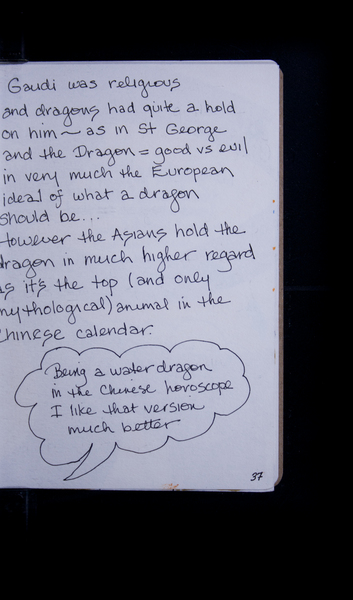 Gaudi was religious
and dragons had quite a hold
on him ~ as in St George
and the Dragon = good vs evil
in very much the European
ideal of what a dragon
should be...
However the Asians hold the
dragon in much higher regard
as it's the top (and only
mythological) animal in the
Chinese calendar.
Being a water dragon
in the Chinese horoscope
I like that version
much better
37